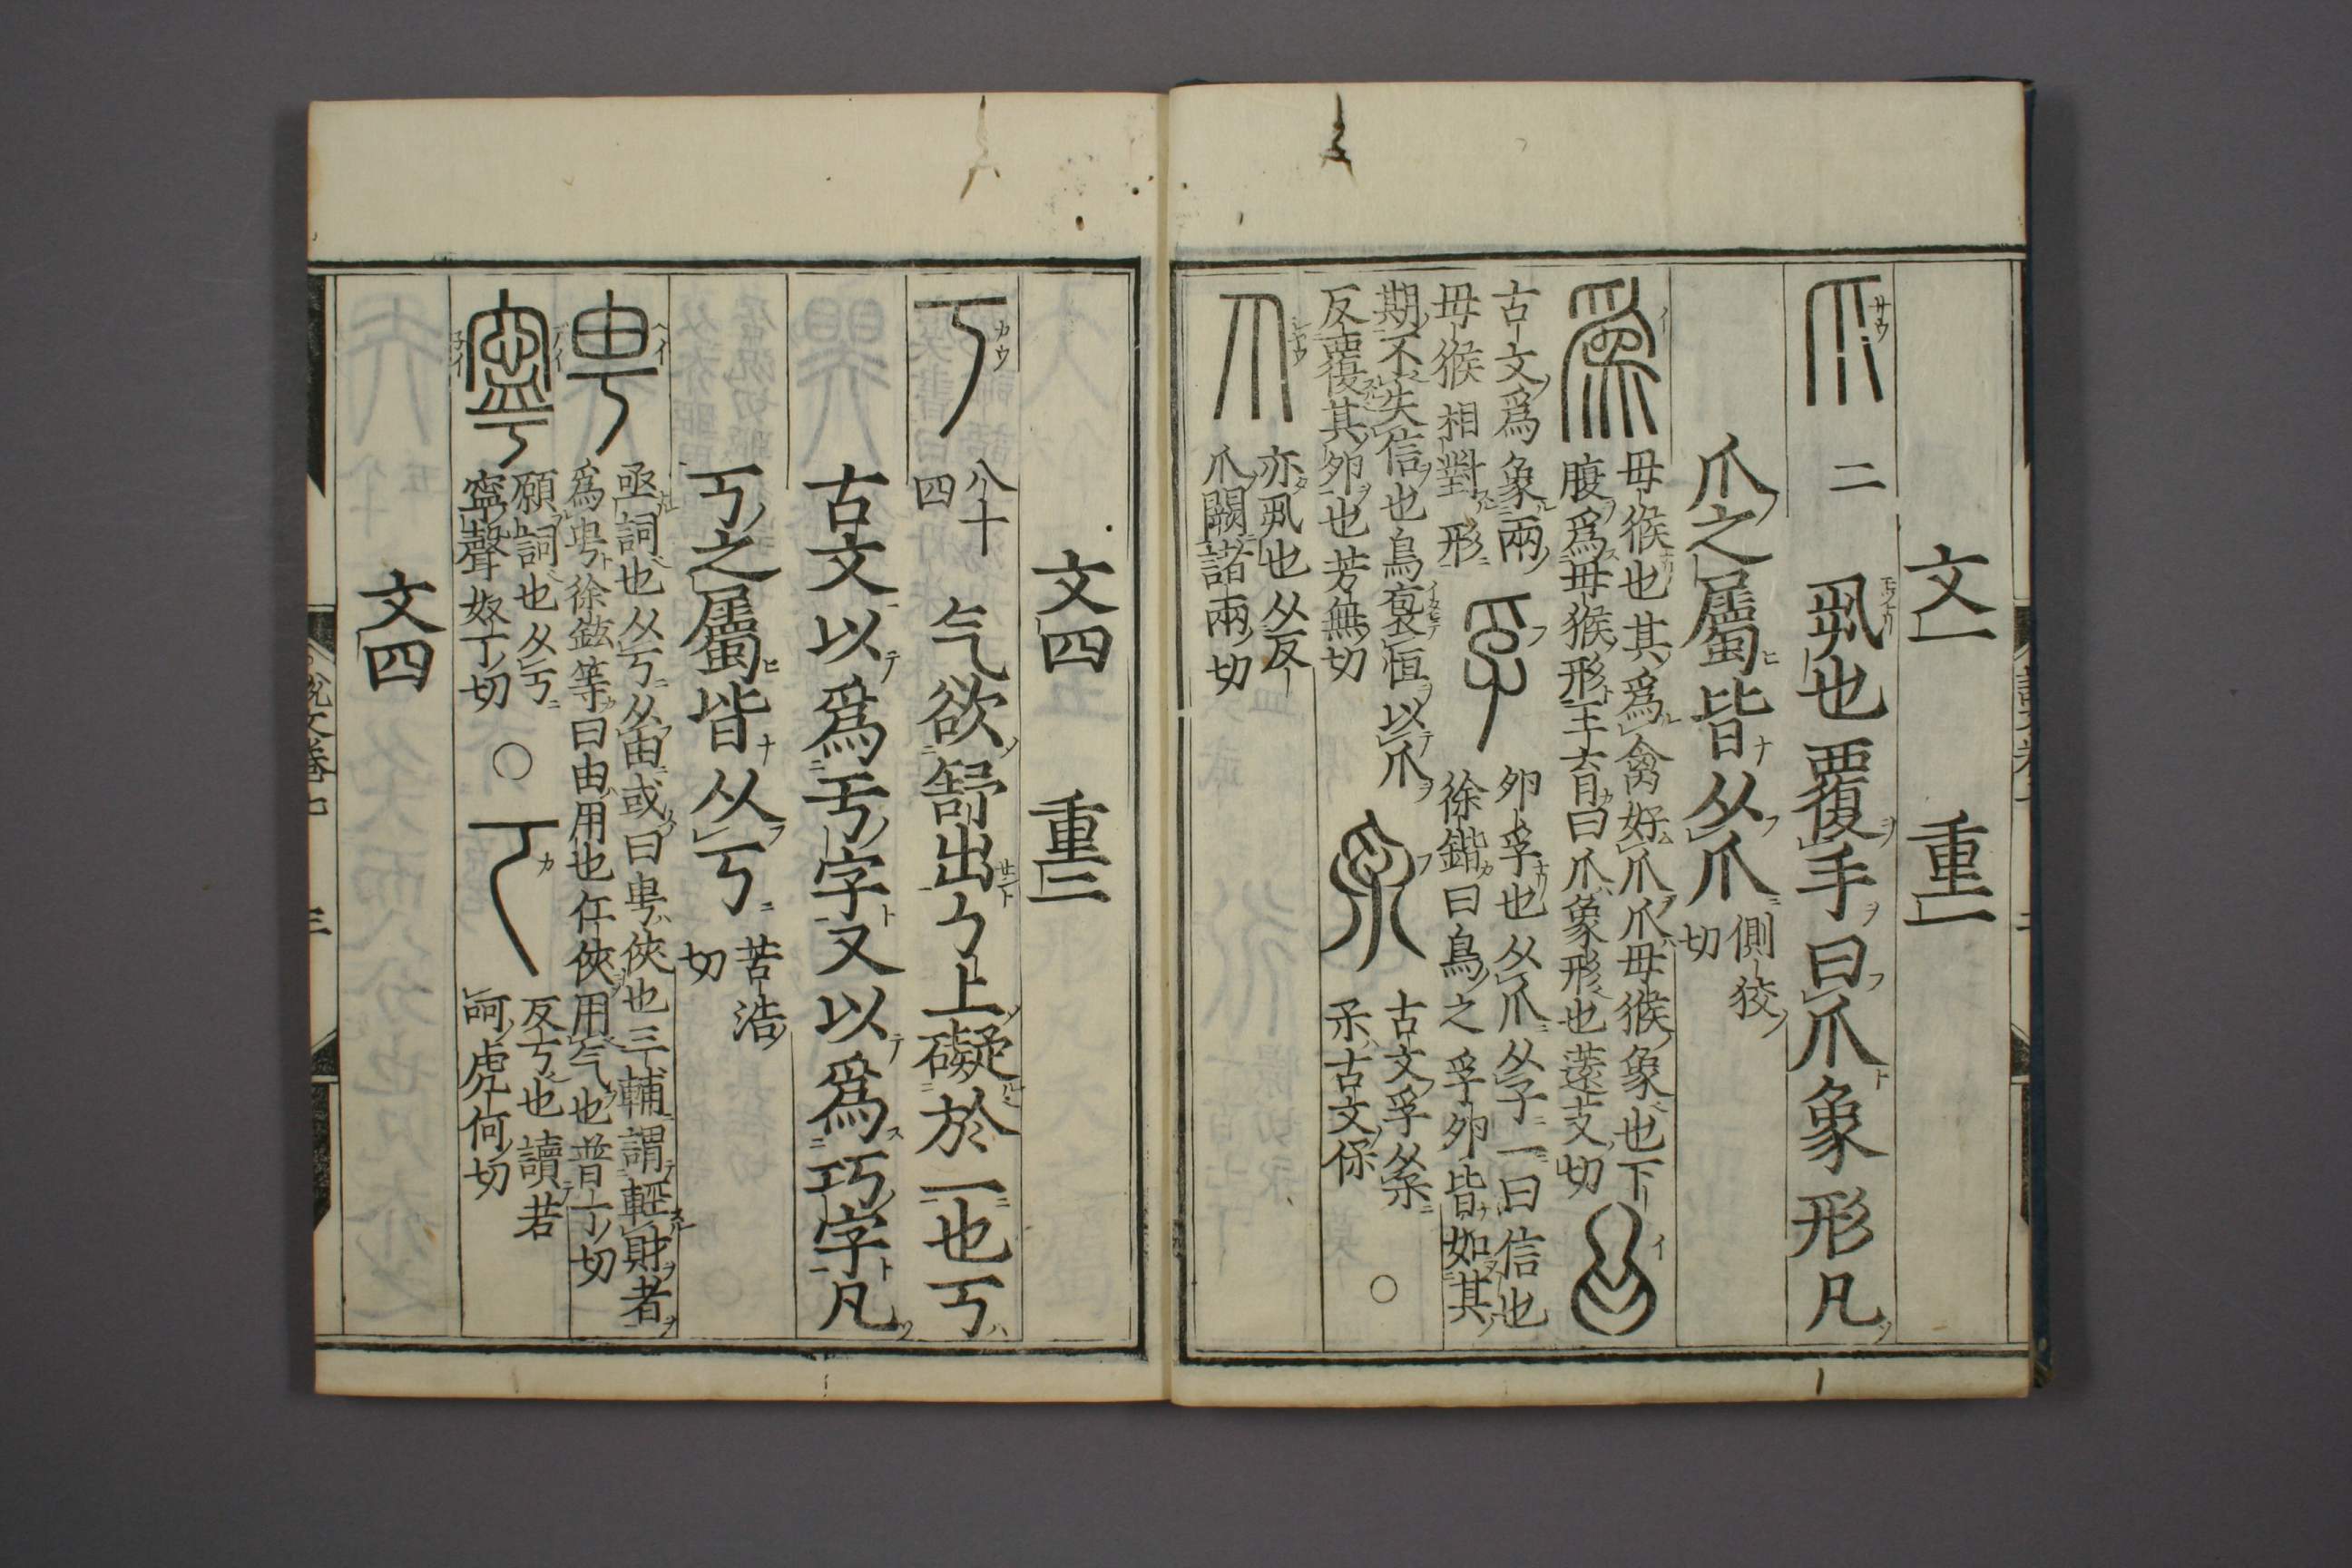 文一　重一
爪 二 丮也覆手曰爪象形凡
爪之屬皆从爪 側狡切
爲 母猴也其爲禽好爪爪母猴象也下
腹爲母猴形王育曰爪象形也薳支切
古文爲象兩
母猴相對形
孚 卵孚也从爪从子一曰信也
徐鍇曰鳥之孚卵皆如其
期不失信也鳥裒恒以爪
反覆其卵也芳無切
古文孚从𤓽
𤓽古文保 〇
爪 亦丮也从反
爪闕諸兩切
文四　重二
丂 八十四 气欲舒出ㄅ上礙於一也丂
古文以爲亐字又以爲巧字凡
丂之屬皆从丂 苦浩切
甹 亟詞也从丂从由或曰甹俠也三輔謂輕財者
爲甹徐鉉等曰由用也任俠用气也普丁切
寧 願詞也从丂
寍聲奴丁切 〇
反丂也讀若
呵虎何切
文四
說文卷十 三